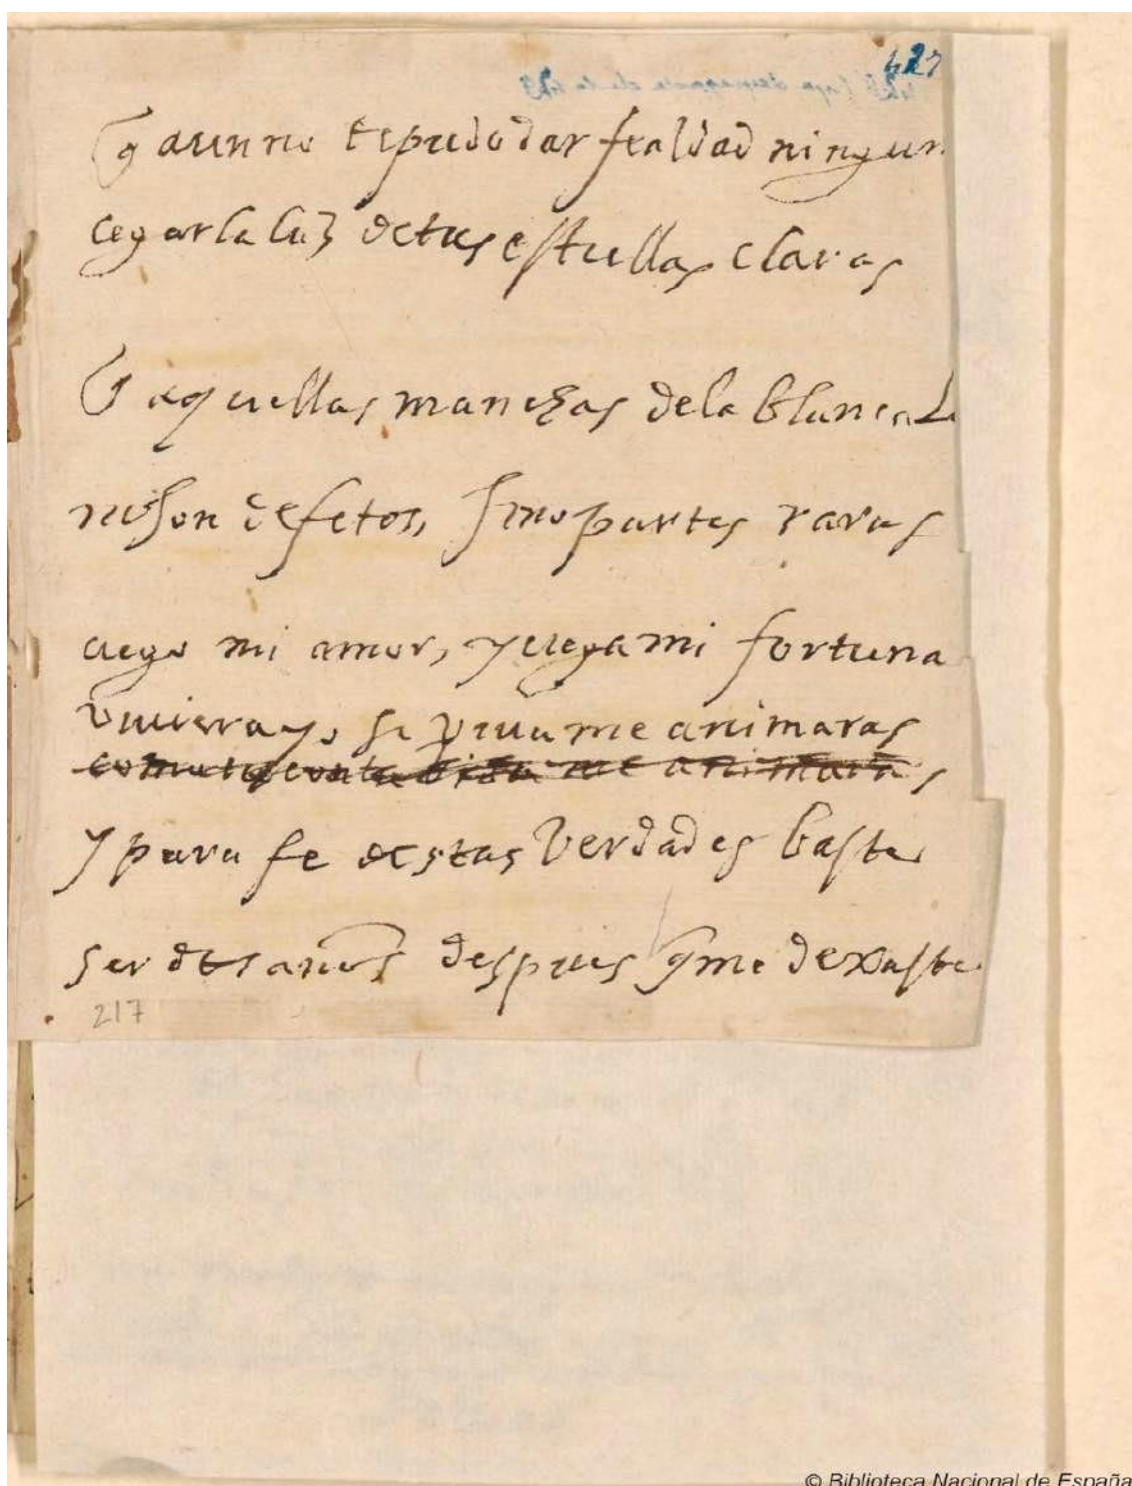 427
q aun no te pudo dar fealdad ningun
cegar la luz de tus estrellas claras
q aquellas manchas de la blanca L
no son defetos, sino partes raras
ciego mi amor, y ciega mi fortuna
viviera yo si viva me animaras
me animaras
y para fe destas verdades baste
ser despues q me dexaste
217
© Biblioteca Nacional de España